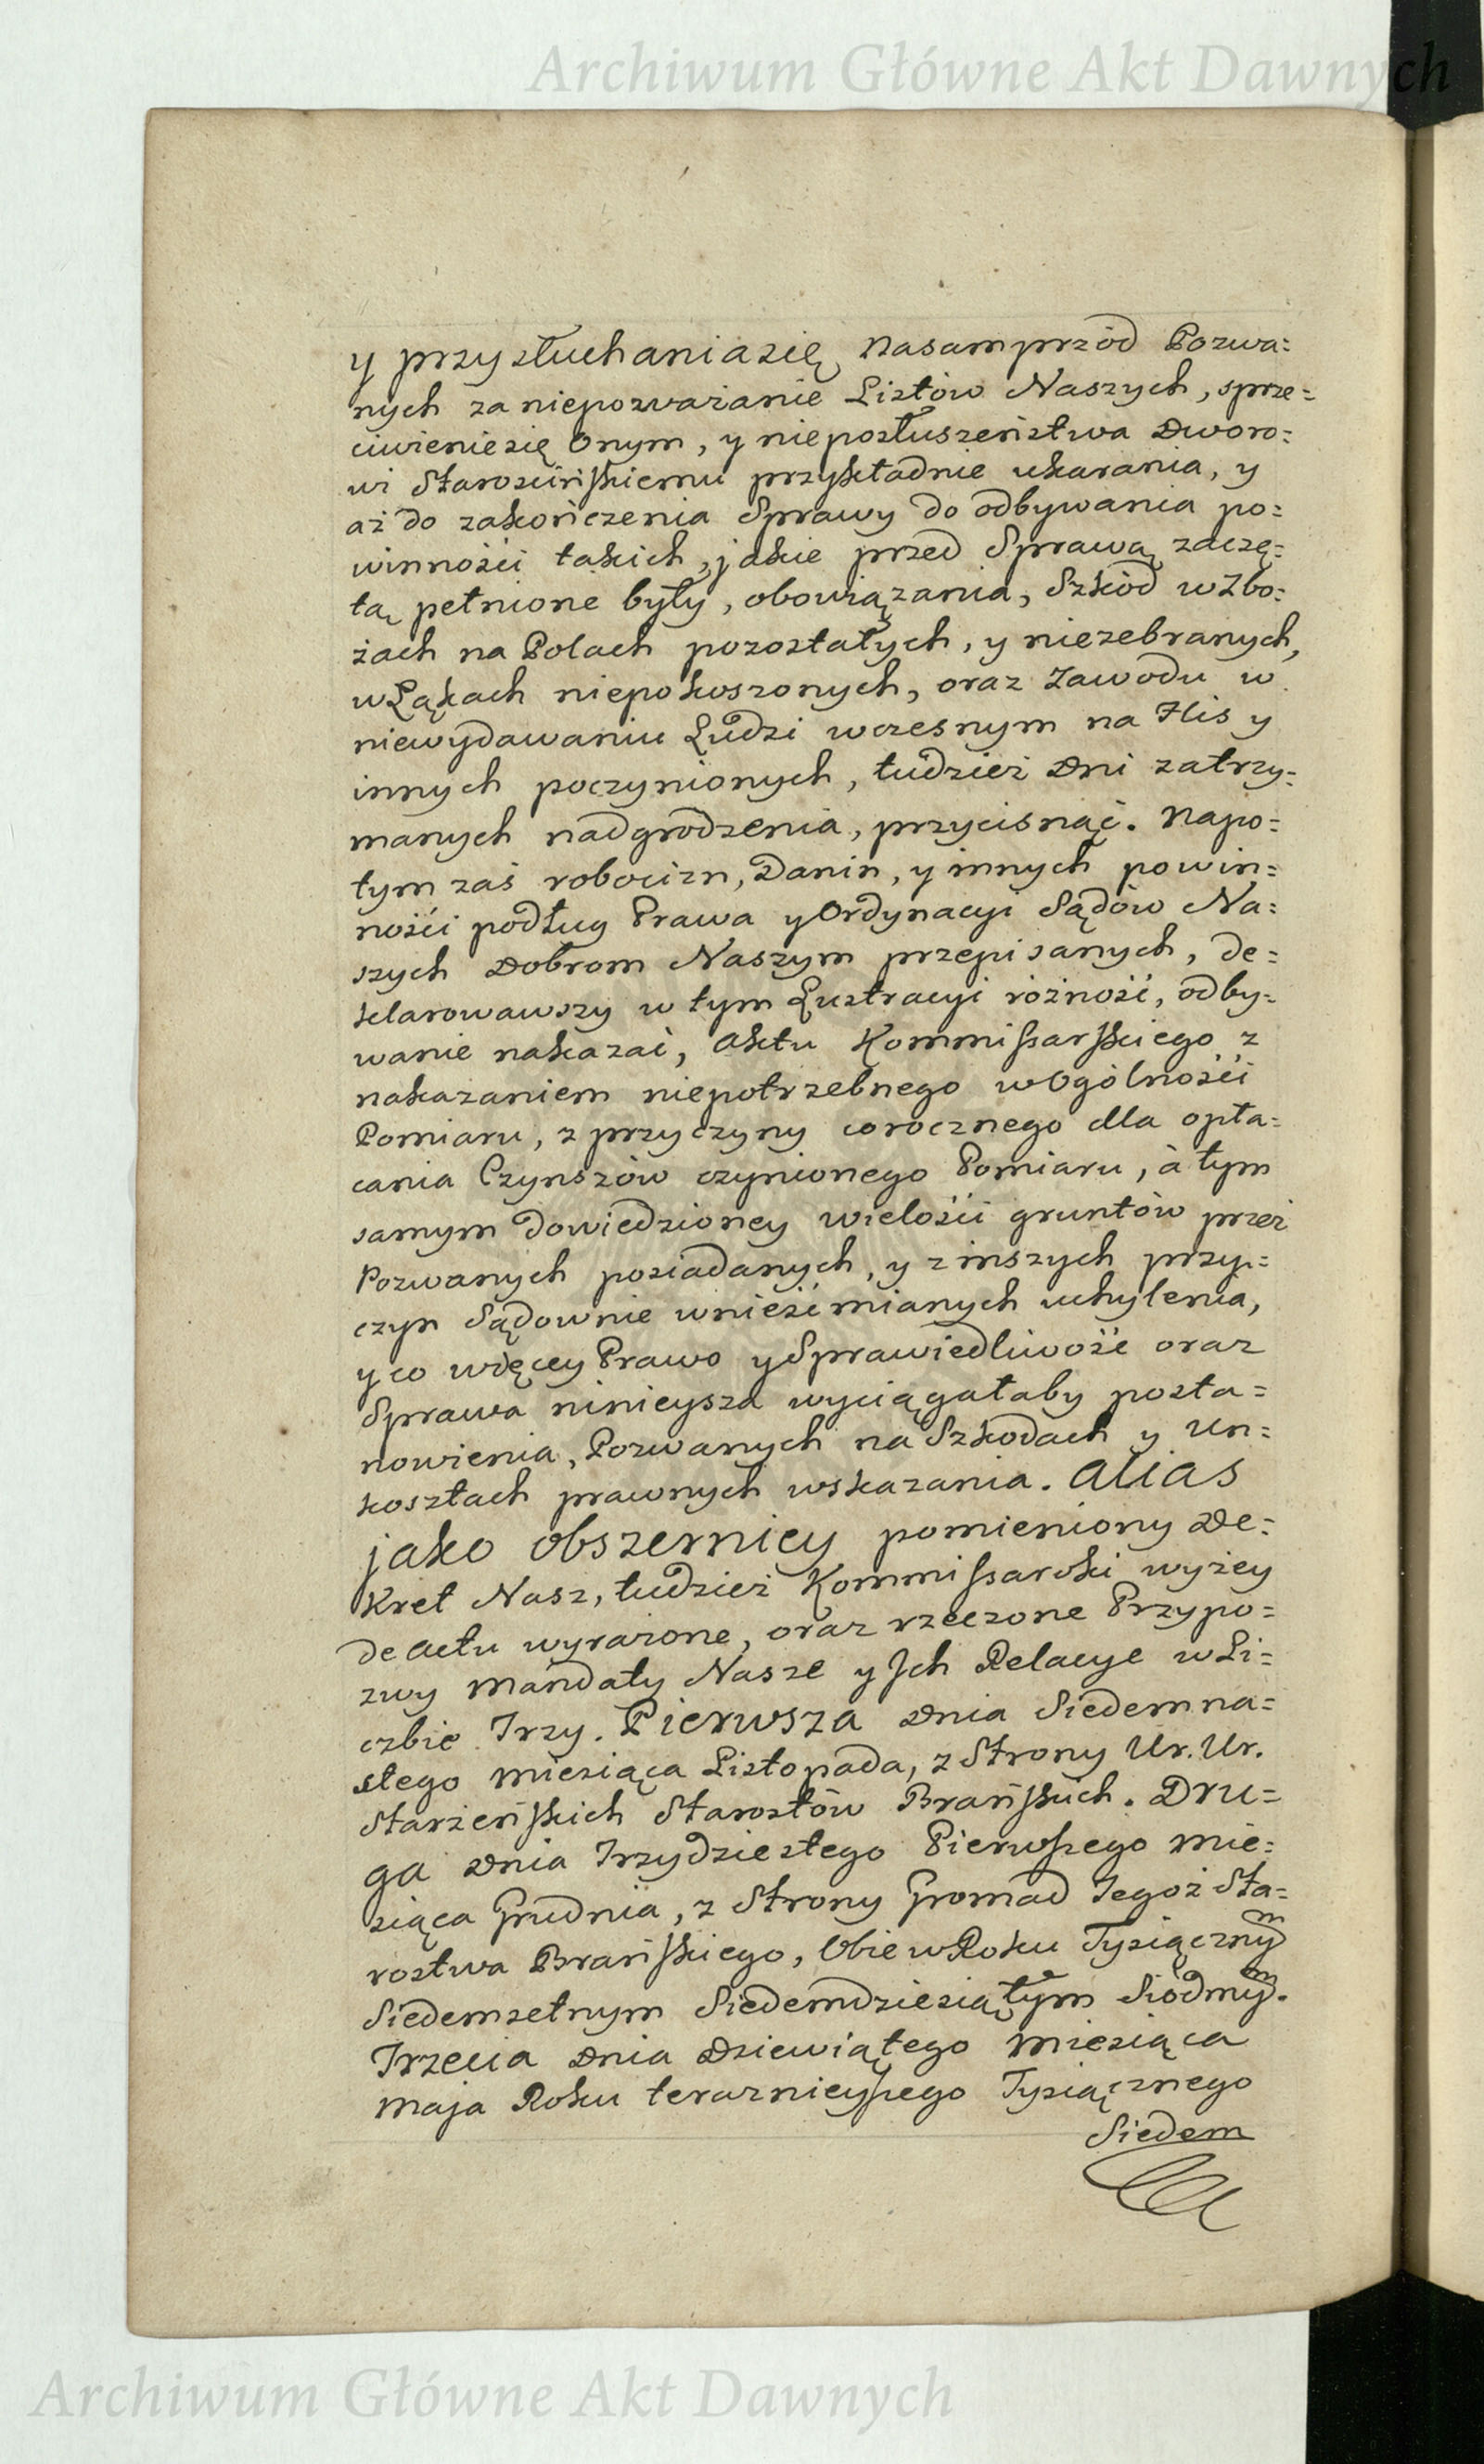 Archiwum Główne Akt Dawnych
y przysłuchania się, Nasamprzód Pozwa=
nych za niepoważanie Listów Naszych, sprze=
ciwienie się Onym, y nieposłuszeństwa Dworo=
wi Starościńskiemu przykładnie ukarania, y
aż do zakończenia Sprawy do odbywania po=
winności takich, jakie przed Sprawą zaczę=
tą pełnione były, obowiązania, Szkód w Zbo=
żach na Polach pozostałych, y niezebranych,
w Łąkach niepokoszonych, oraz Zawodu w
niewydawaniu Ludzi wczesnym na Flis y
innych poczynionych, tudzież Dni zatrzy=
manych nadgrodzenia, przycisnąć. Napo=
tym zaś robocizn, Danin, y innych powin=
ności podług Prawa y Ordynacyi Sądów Na=
szych Dobrom Naszym przepisanych, de=
klarowawszy w tym Lustracyi różność, odby=
wanie nakazać, Aktu Kommissarskiego z
nakazaniem niepotrzebnego w Ogólności
Pomiaru, z przyczyny corocznego dla opła=
cania Czynszów czynionego Pomiaru, à tym
samym dowiedzioney wielości gruntów przez
Pozwanych posiadanych, y z inszych przy=
czyn Sądownie wnieść mianych uchylenia,
y co więcey Prawo y Sprawiedliwość oraz
Sprawa ninieysza wyciągałaby posta=
nowienia, Pozwanych na Szkodach y Un=
kosztach prawnych wskazania. Alias
jako obszerniey pomieniony De=
kret Nasz, tudzież Kommissarski wyżey
de Actu wyrażone, oraz rzeczone Przypo=
zwy Mandaty Nasze y Ich Relacye w Li=
czbie Trzy. Pierwsza Dnia Siedemna=
stego Miesiąca Listopada, z Strony Ur. Ur.
Starzeńskich Starostów Brańskich. Dru=
ga Dnia Trzydziestego Pierwszego Mie=
siąca Grudnia, z Strony Gromad Tegoż Sta=
rostwa Brańskiego, Obie w Roku Tysiącznym
Siedemsetnym Siedemdziesiątym Siódmym.
Trzecia Dnia Dziewiątego Miesiąca
Maja Roku teraznieyszego Tysiącznego
Siedem
Archiwum Główne Akt Dawnych